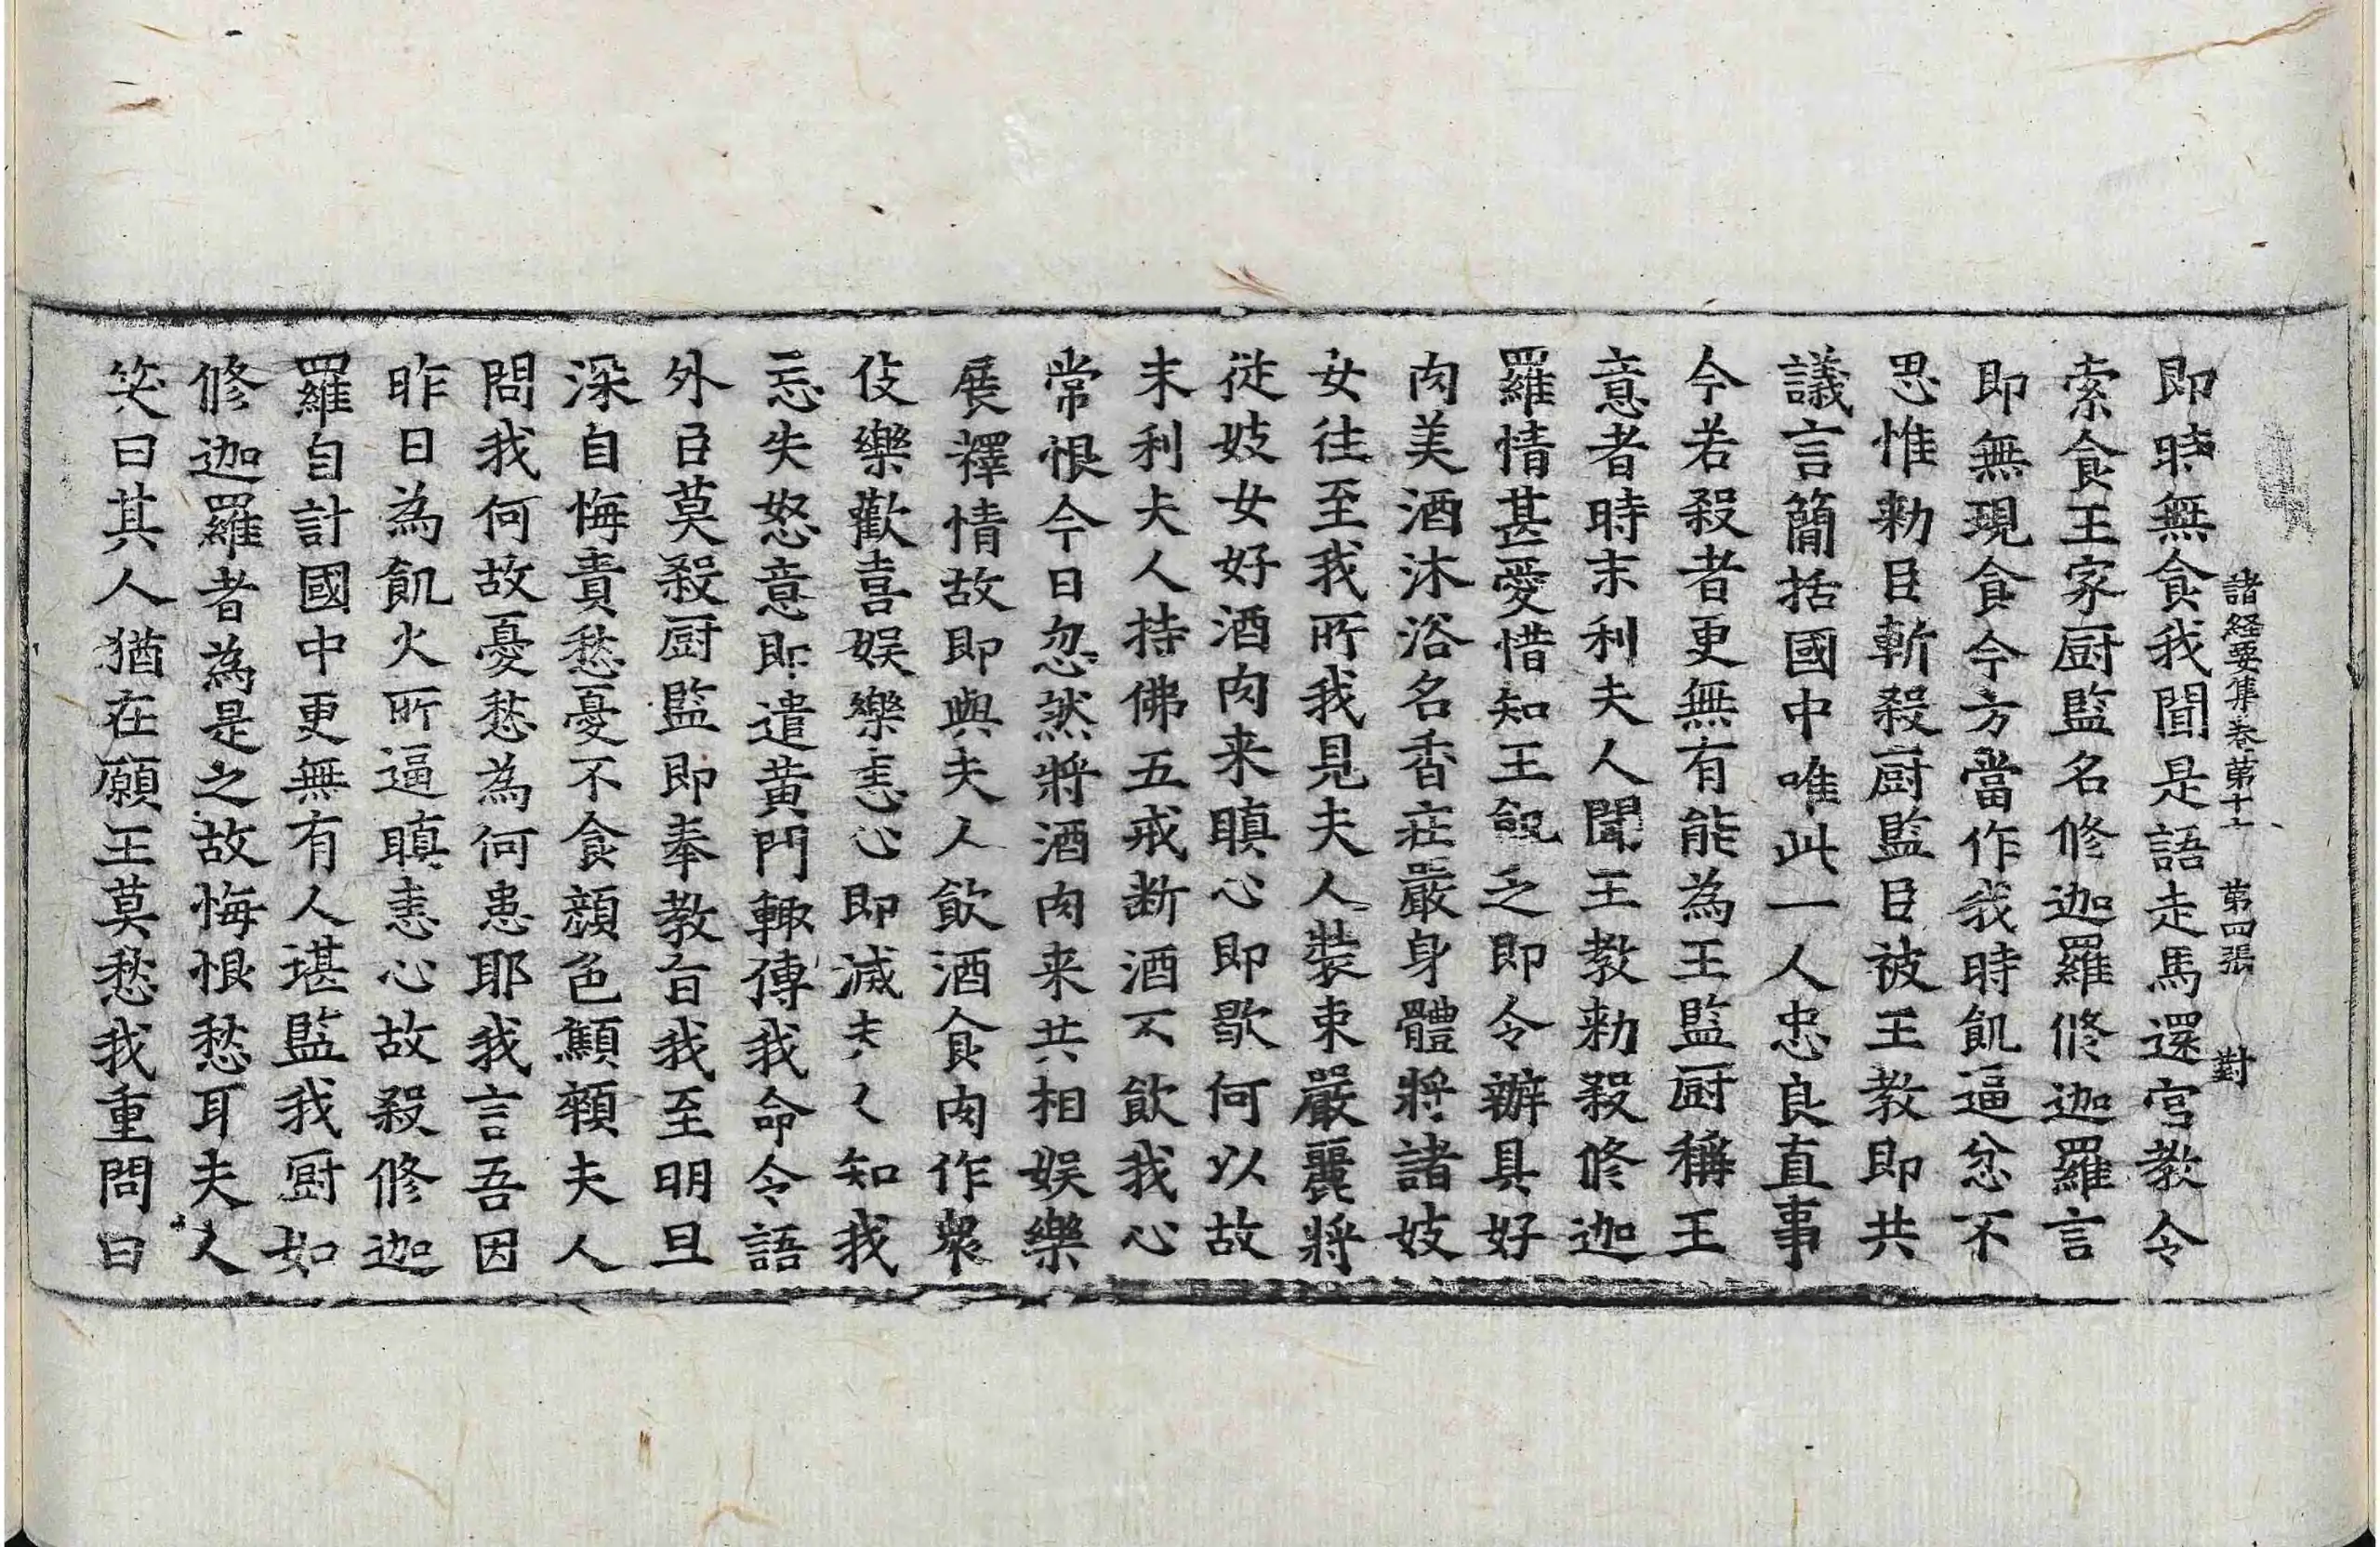 諸経要集卷第十七　第四張　對
即時無食我聞是語走馬還宮教令
索食王家厨監名修迦羅修迦羅言
即無現食今方當作我時飢逼忿不
思惟勑臣斬殺厨監臣被王教即共
議言簡括國中唯此一人忠良直事
今若殺者更無有能為王監厨稱王
意者時末利夫人聞王教勑殺修迦
羅情甚愛惜知王飢乏即令辦具好
肉美酒沐浴名香莊嚴身體將諸妓
女往至我所我見夫人裝束嚴麗將
從妓女好酒肉来瞋心即歇何以故
末利夫人持佛五戒断酒不飲我心
常恨今日忽然將酒肉来共相娛樂
展釋情故即與夫人飲酒食肉作衆
伎樂歡喜娛樂恚心即滅夫人知我
忘失怒意即遣黄門輙傳我命令語
外臣莫殺厨監即奉教旨我至明旦
深自悔責愁憂不食顔色顦頓夫人
問我何故憂愁為何患耶我言吾因
昨日為飢火所逼瞋恚心故殺修迦
羅自計國中更無有人堪監我厨如
修迦羅者為是之故悔恨愁耳夫人
笑曰其人猶在願王莫愁我重問曰